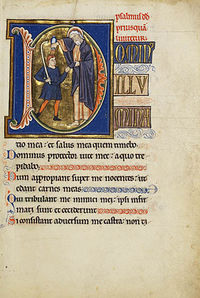 psalmus dd
priusquā
liniretur
D
OMIN
ILLU
MINA
tio mea: et salus mea quem timebo
Dominus protector vite mee: a quo tre
pidabo
Dum appropiant super me nocentes: ut
edant carnes meas
Qui tribulant me inimici mei: ipsi infir
mati sunt et ceciderunt
Si consistant adversum me castra: non ti